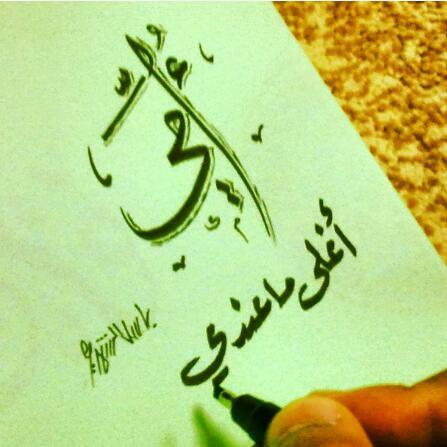 أمي
أغلى ما عندي